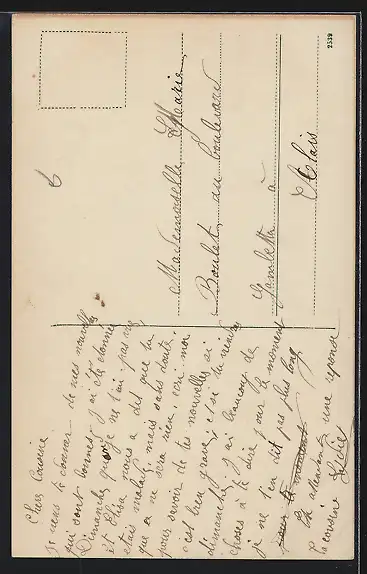 Chère Cousine
Je viens te donner de mes nouvelles
qui sont bonnes, j'ai été étonnée
Dimanche quand je ne t'ai pas vu
et Elisa nous a dit que tu
étais malade, mais sans doute
que ce ne sera rien, écri moi
pour savoir de tes nouvelles si
c'est bien grave, et si tu viendras
dimanche, j'ai beaucoup de
choses à te dire pour le moment
je ne t'en dit pas plus long
pour le moment
En attendant une réponse
ta cousine
Mademoiselle Marie
Boulet au boulevard
Gambetta à
Calais
2539
6